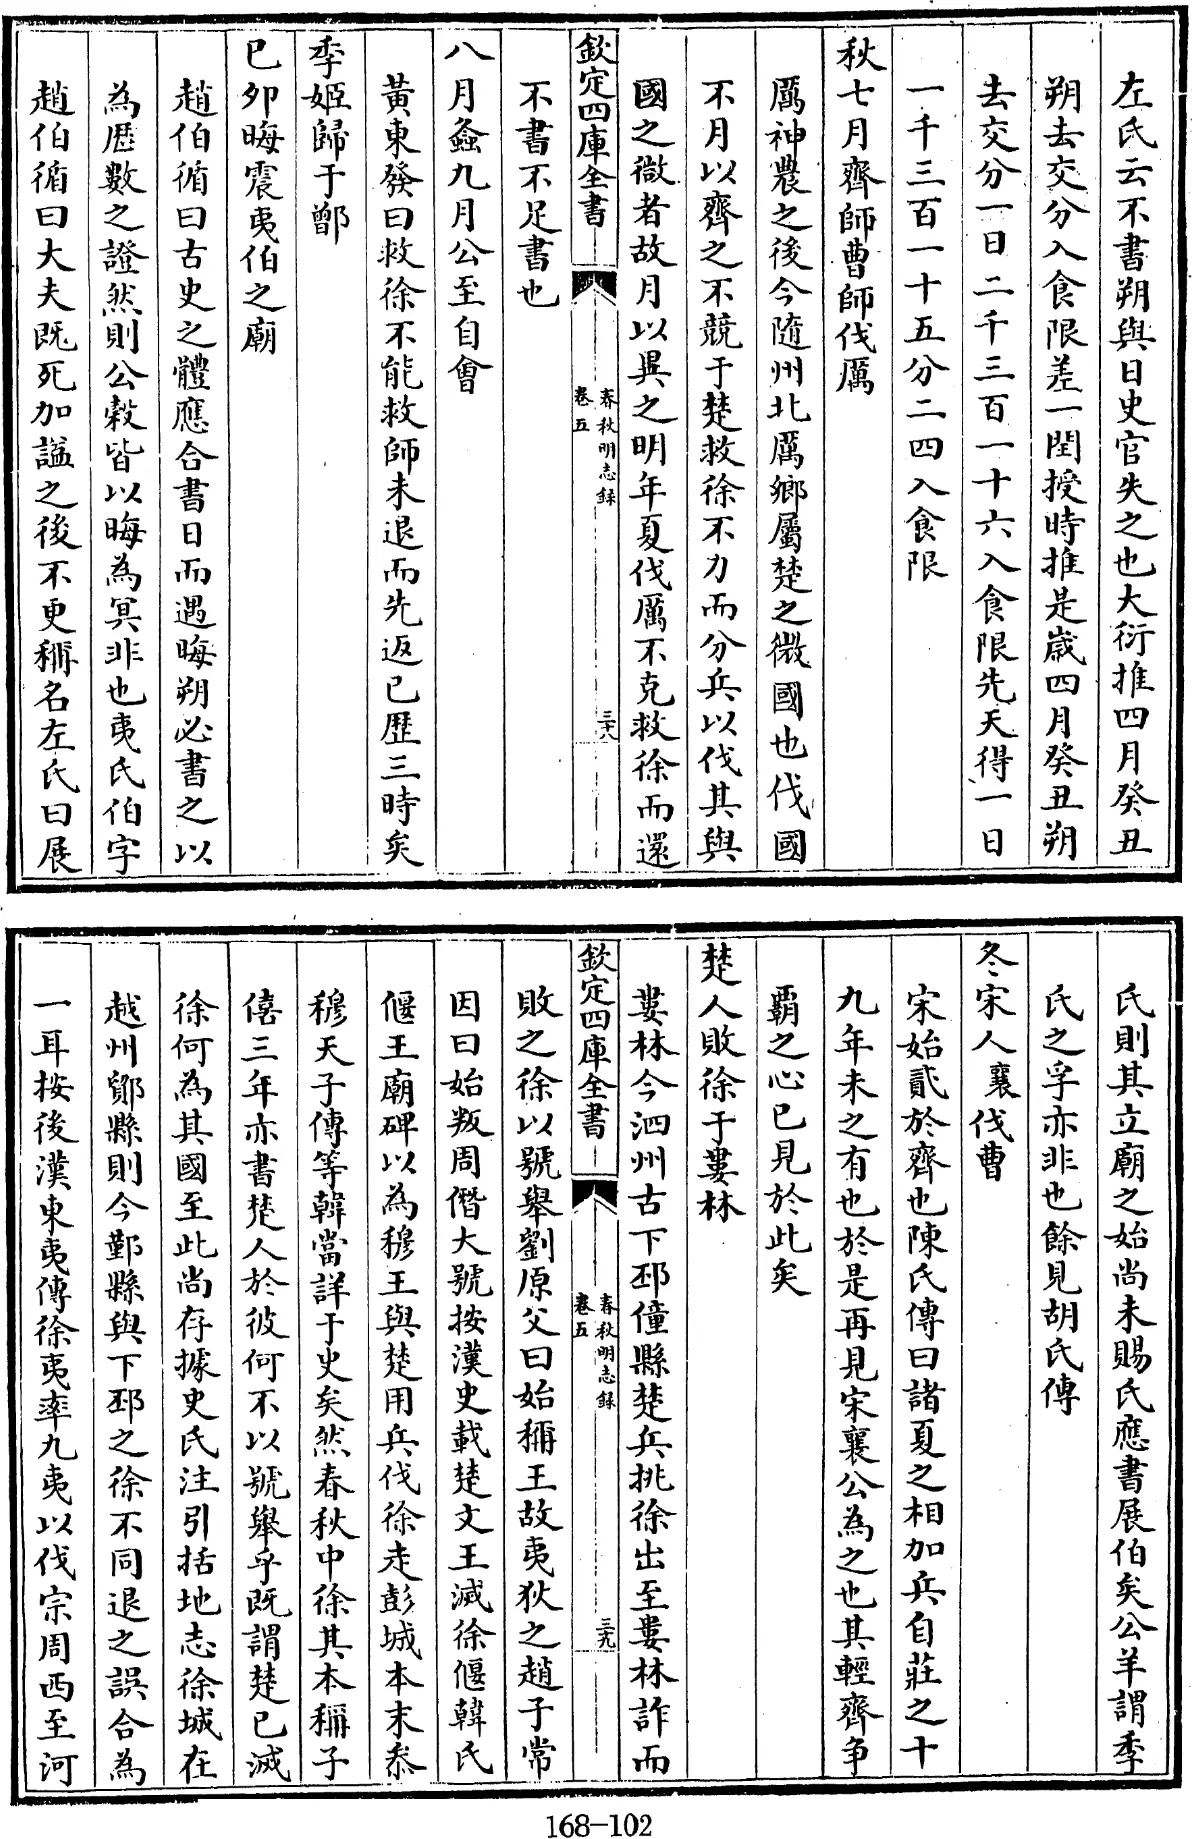 左氏云不書朔與日史官失之也大衍推四月癸丑
朔去交分入食限差一閏授時推是歲四月癸丑朔
去交分一日二千三百一十六入食限先天得一日
一千三百一十五分二四入食限
秋七月齊師曹師伐厲
厲神農之後今隨州北厲鄉屬楚之微國也伐國
不月以齊之不競于楚救徐不力而分兵以伐其與
國之微者故月以異之明年夏伐厲不克救徐而還
欽定四庫全書
春秋明志錄
卷五
三十八
不書不足書也
八月螽九月公至自會
黃東發曰救徐不能救師未退而先返已歷三時矣
季姬歸于鄫
已卯晦震夷伯之廟
趙伯循曰古史之體應合書日而遇晦朔必書之以
為歷數之證然則公穀皆以晦為冥非也夷氏伯字
趙伯循曰大夫既死加諡之後不更稱名左氏曰展
氏則其立廟之始尚未賜氏應書展伯矣公羊謂季
氏之孚亦非也餘見胡氏傳
冬宋人襄伐曹
宋始貳於齊也陳氏傳曰諸夏之相加兵自莊之十
九年未之有也於是再見宋襄公為之也其輕齊争
覇之心已見於此矣
楚人敗徐于婁林
婁林今泗州古下邳僮縣楚兵挑徐出至婁林詐而
欽定四庫全書
春秋明志錄
卷五
三十九
敗之徐以號舉劉原父曰始稱王故夷狄之趙子常
因曰始叛周僭大號按漢史載楚文王滅徐偃韓氏
偃王廟碑以為穆王與楚用兵伐徐走彭城本末叅
穆天子傳等韓當詳于史矣然春秋中徐其本稱子
僖三年亦書楚人於彼何不以號舉乎既謂楚已滅
徐何為其國至此尚存據史氏注引括地志徐城在
越州鄮縣則今鄞縣與下邳之徐不同退之誤合為
一耳按後漢東夷傳徐夷率九夷以伐宗周西至河
168-102